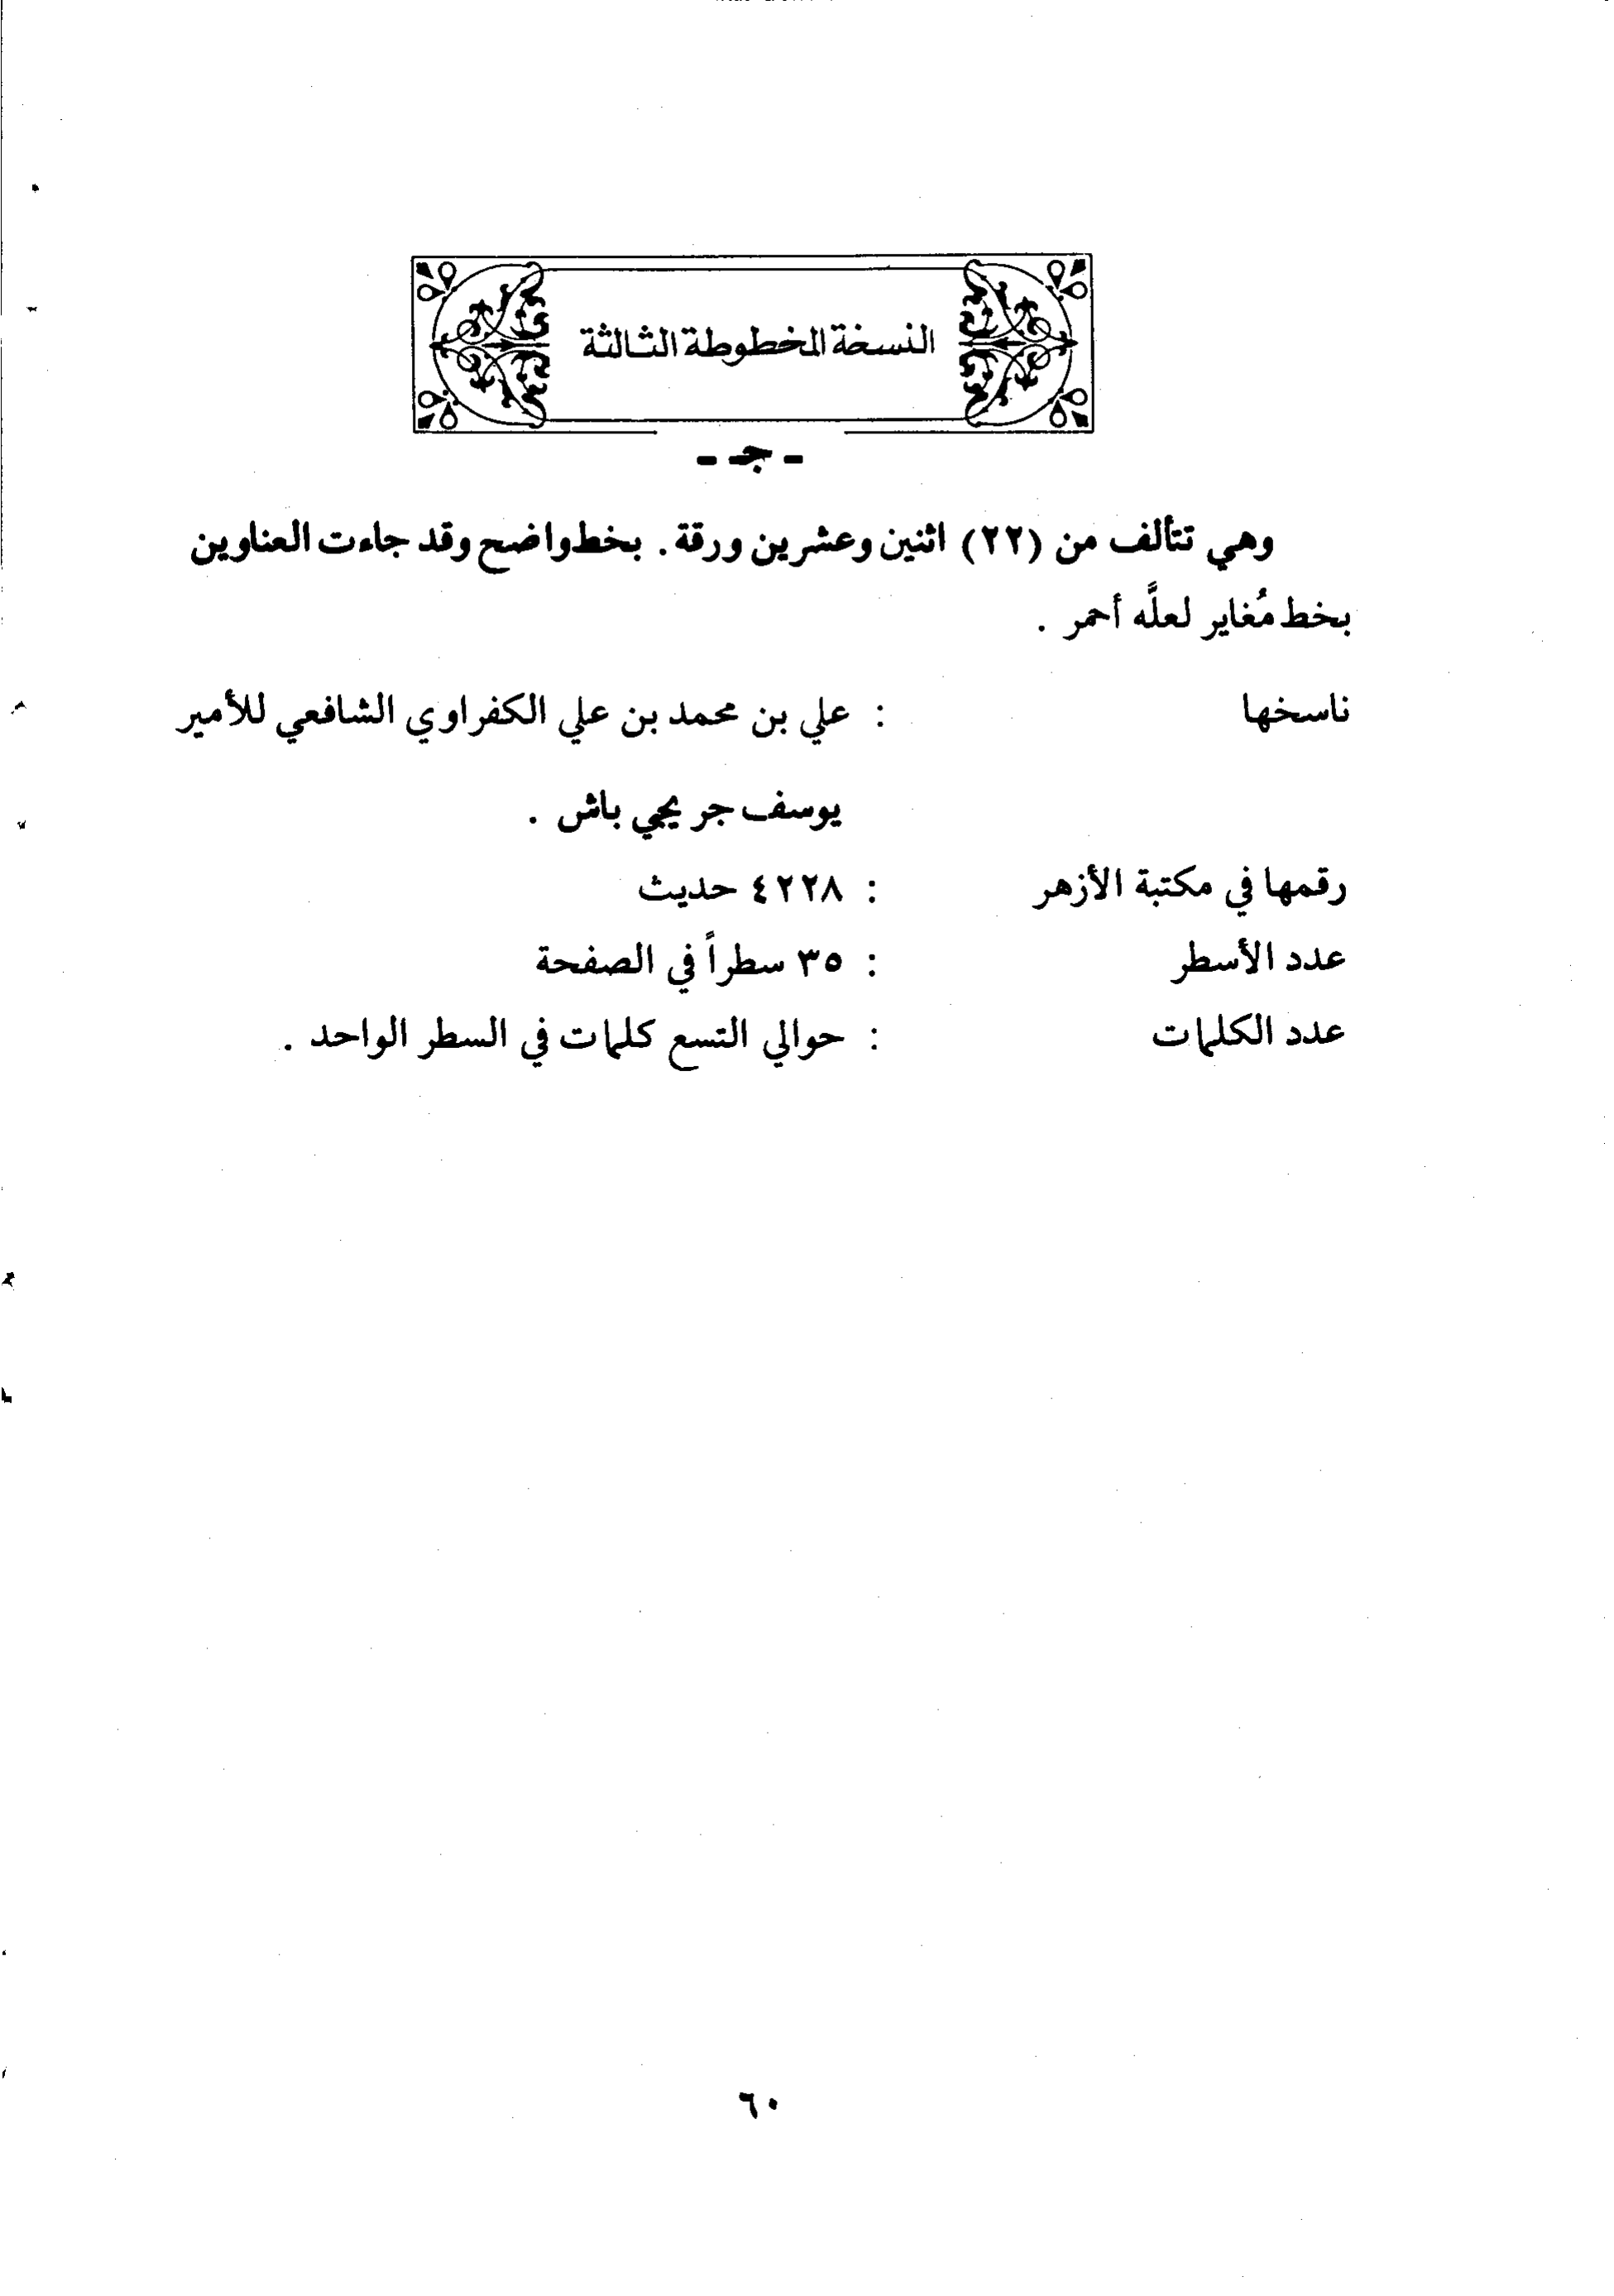 النسخة المخطوطة الثالثة
- جـ -
وهي تتألف من (٢٢) اثنين وعشرين ورقة. بخط واضح وقد جاءت العناوين
بخط مُغاير لعلَّه أحمر .
ناسخها : علي بن محمد بن علي الكفراوي الشافعي للأمير
يوسف جريجي باش .
رقمها في مكتبة الأزهر : ٤٢٢٨ حديث
عدد الأسطر : ٣٥ سطراً في الصفحة
عدد الكلمات : حوالي التسع كلمات في السطر الواحد .
٦٠